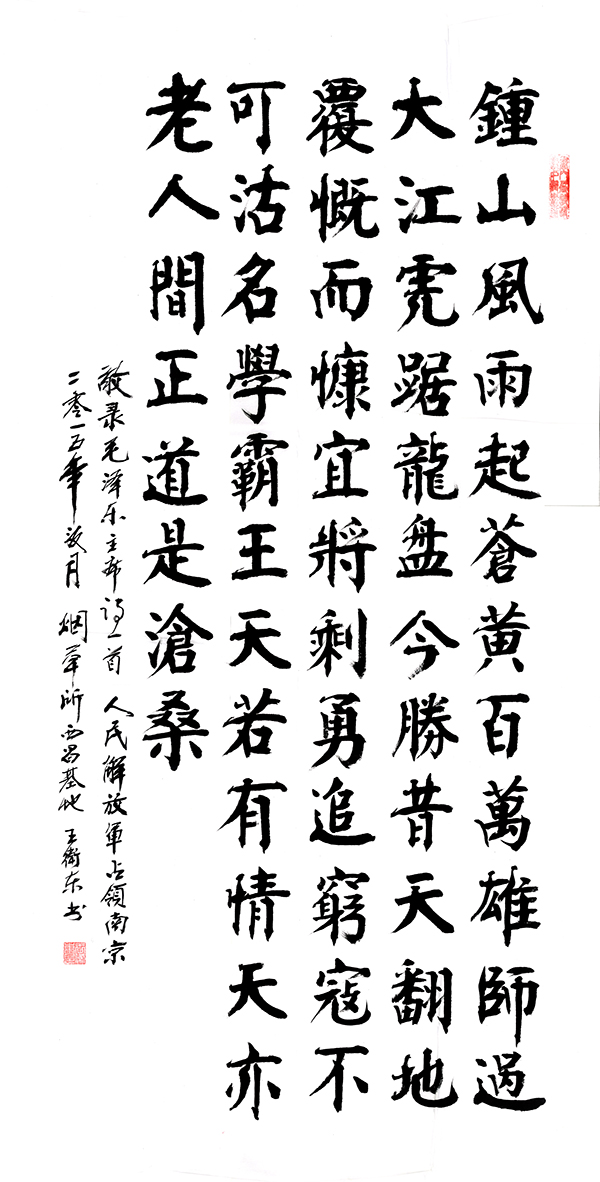 鍾山風雨起蒼黃百萬雄師過
大江虎踞龍盤今勝昔天翻地
覆慨而慷宜將剩勇追窮寇不
可沽名學霸王天若有情天亦
老人間正道是滄桑
敬录毛泽东主席诗一首 人民解放軍占領南京
二零一五年月 烟草所西昌基地 王衛东书